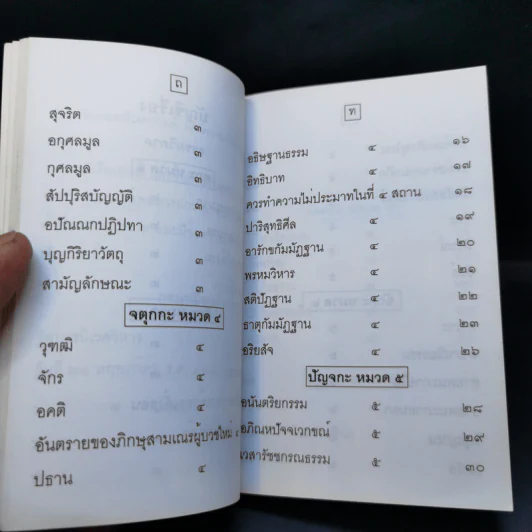 ถ
สุจริต ๓
อกุศลมูล ๓
กุศลมูล ๓
สัปปุริสบัญญัติ ๓
อปัณณกปฏิปทา ๓
บุญกิริยาวัตถุ ๓
สามัญลักษณะ ๓
จตุกกะ หมวด ๔
วุฑฒิ ๔
จักร ๔
อคติ ๔
อันตรายของภิกษุสามเณรผู้บวชใหม่ ๔
ปธาน ๔
ท
อธิษฐานธรรม ๔ ๑๖
อิทธิบาท ๔ ๑๗
ควรทำความไม่ประมาทในที่ ๔ สถาน ๑๘
ปาริสุทธิศีล ๔ ๑๙
อารักขกัมมัฏฐาน ๔ ๒๐
พรหมวิหาร ๔ ๒๑
สติปัฏฐาน ๔ ๒๒
ธาตุกัมมัฏฐาน ๔ ๒๓
อริยสัจ ๔ ๒๖
ปัญจกะ หมวด ๕
อนันตริยกรรม ๕ ๒๘
อภิณหปัจจเวกขณ์ ๕ ๒๙
เวสารัชชกรณธรรม ๕ ๓๐